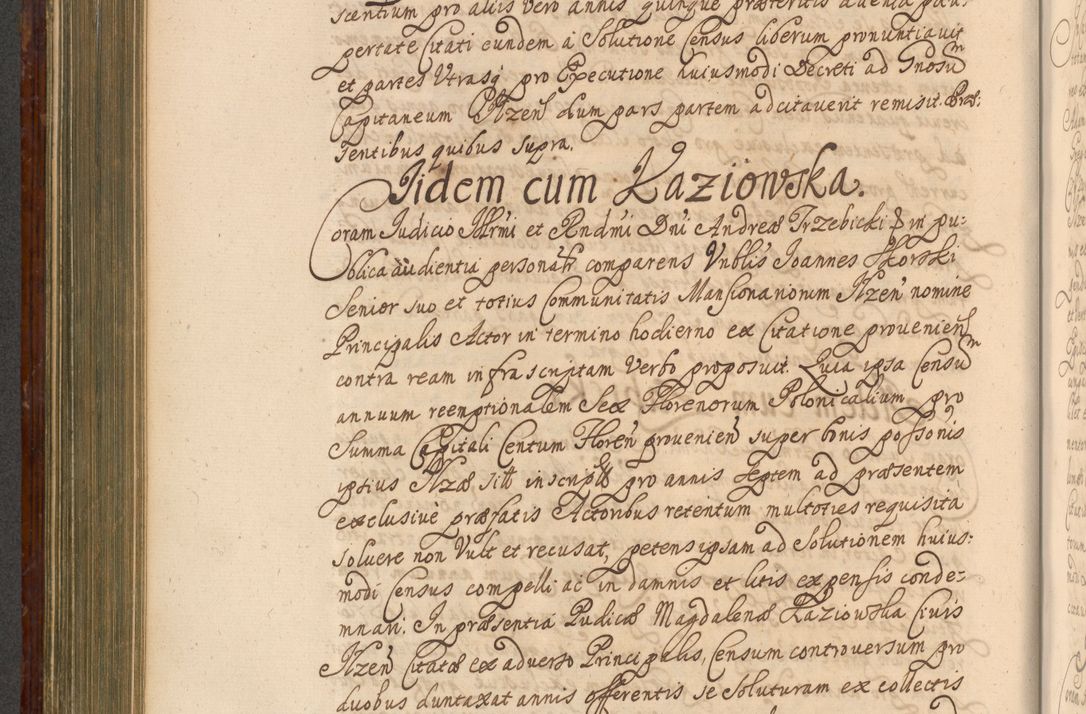 scentium pro aliis vero annis quinque præteritis
pertate Citati eundem à Solutione Census liberum pronuntiavit
et partes Utrasq pro Executione huiusmodi Decreti ad Gnosum
Capitaneum Ilzen dum pars partem adcitaverit remisit. Præ:
sentibus quibus supra.
Iidem cum Kaziowska.
Coram Judicio Illrmi et Rndmi Dni Andreæ Trzebicki in pu:
blica audientia personalr comparens Vnblis Joannes Skorski
Senior suo et totius Communitatis Mansionariorum Ilzen nomine
Principalis Actor in termino hodierno ex Citatione provenien
contra ream infrascriptam Verbo proposuit. Quia ipsa Censum
annuum reemptionalem Sex Florenorum Polonicalium pro
Summa Capitali Centum Floren provenien super bonis possonis
ipsius Ilzæ sitt inscript pro annis septem ad præsentem
exclusivè præfatis Actoribus retentum multoties requisita
solvere non Vult et recusat, petens ipsam ad Solutionem huius:
modi Census compelli ac in damnis et litis expensis conde:
mnari. In præsentia Pudicæ Magdalenæ Kaziowska Civis
Ilzen Citatæ ex adverso Principalis, Censum controversum pro
duobus duntaxat annis offerentis se Soluturam ex collectis